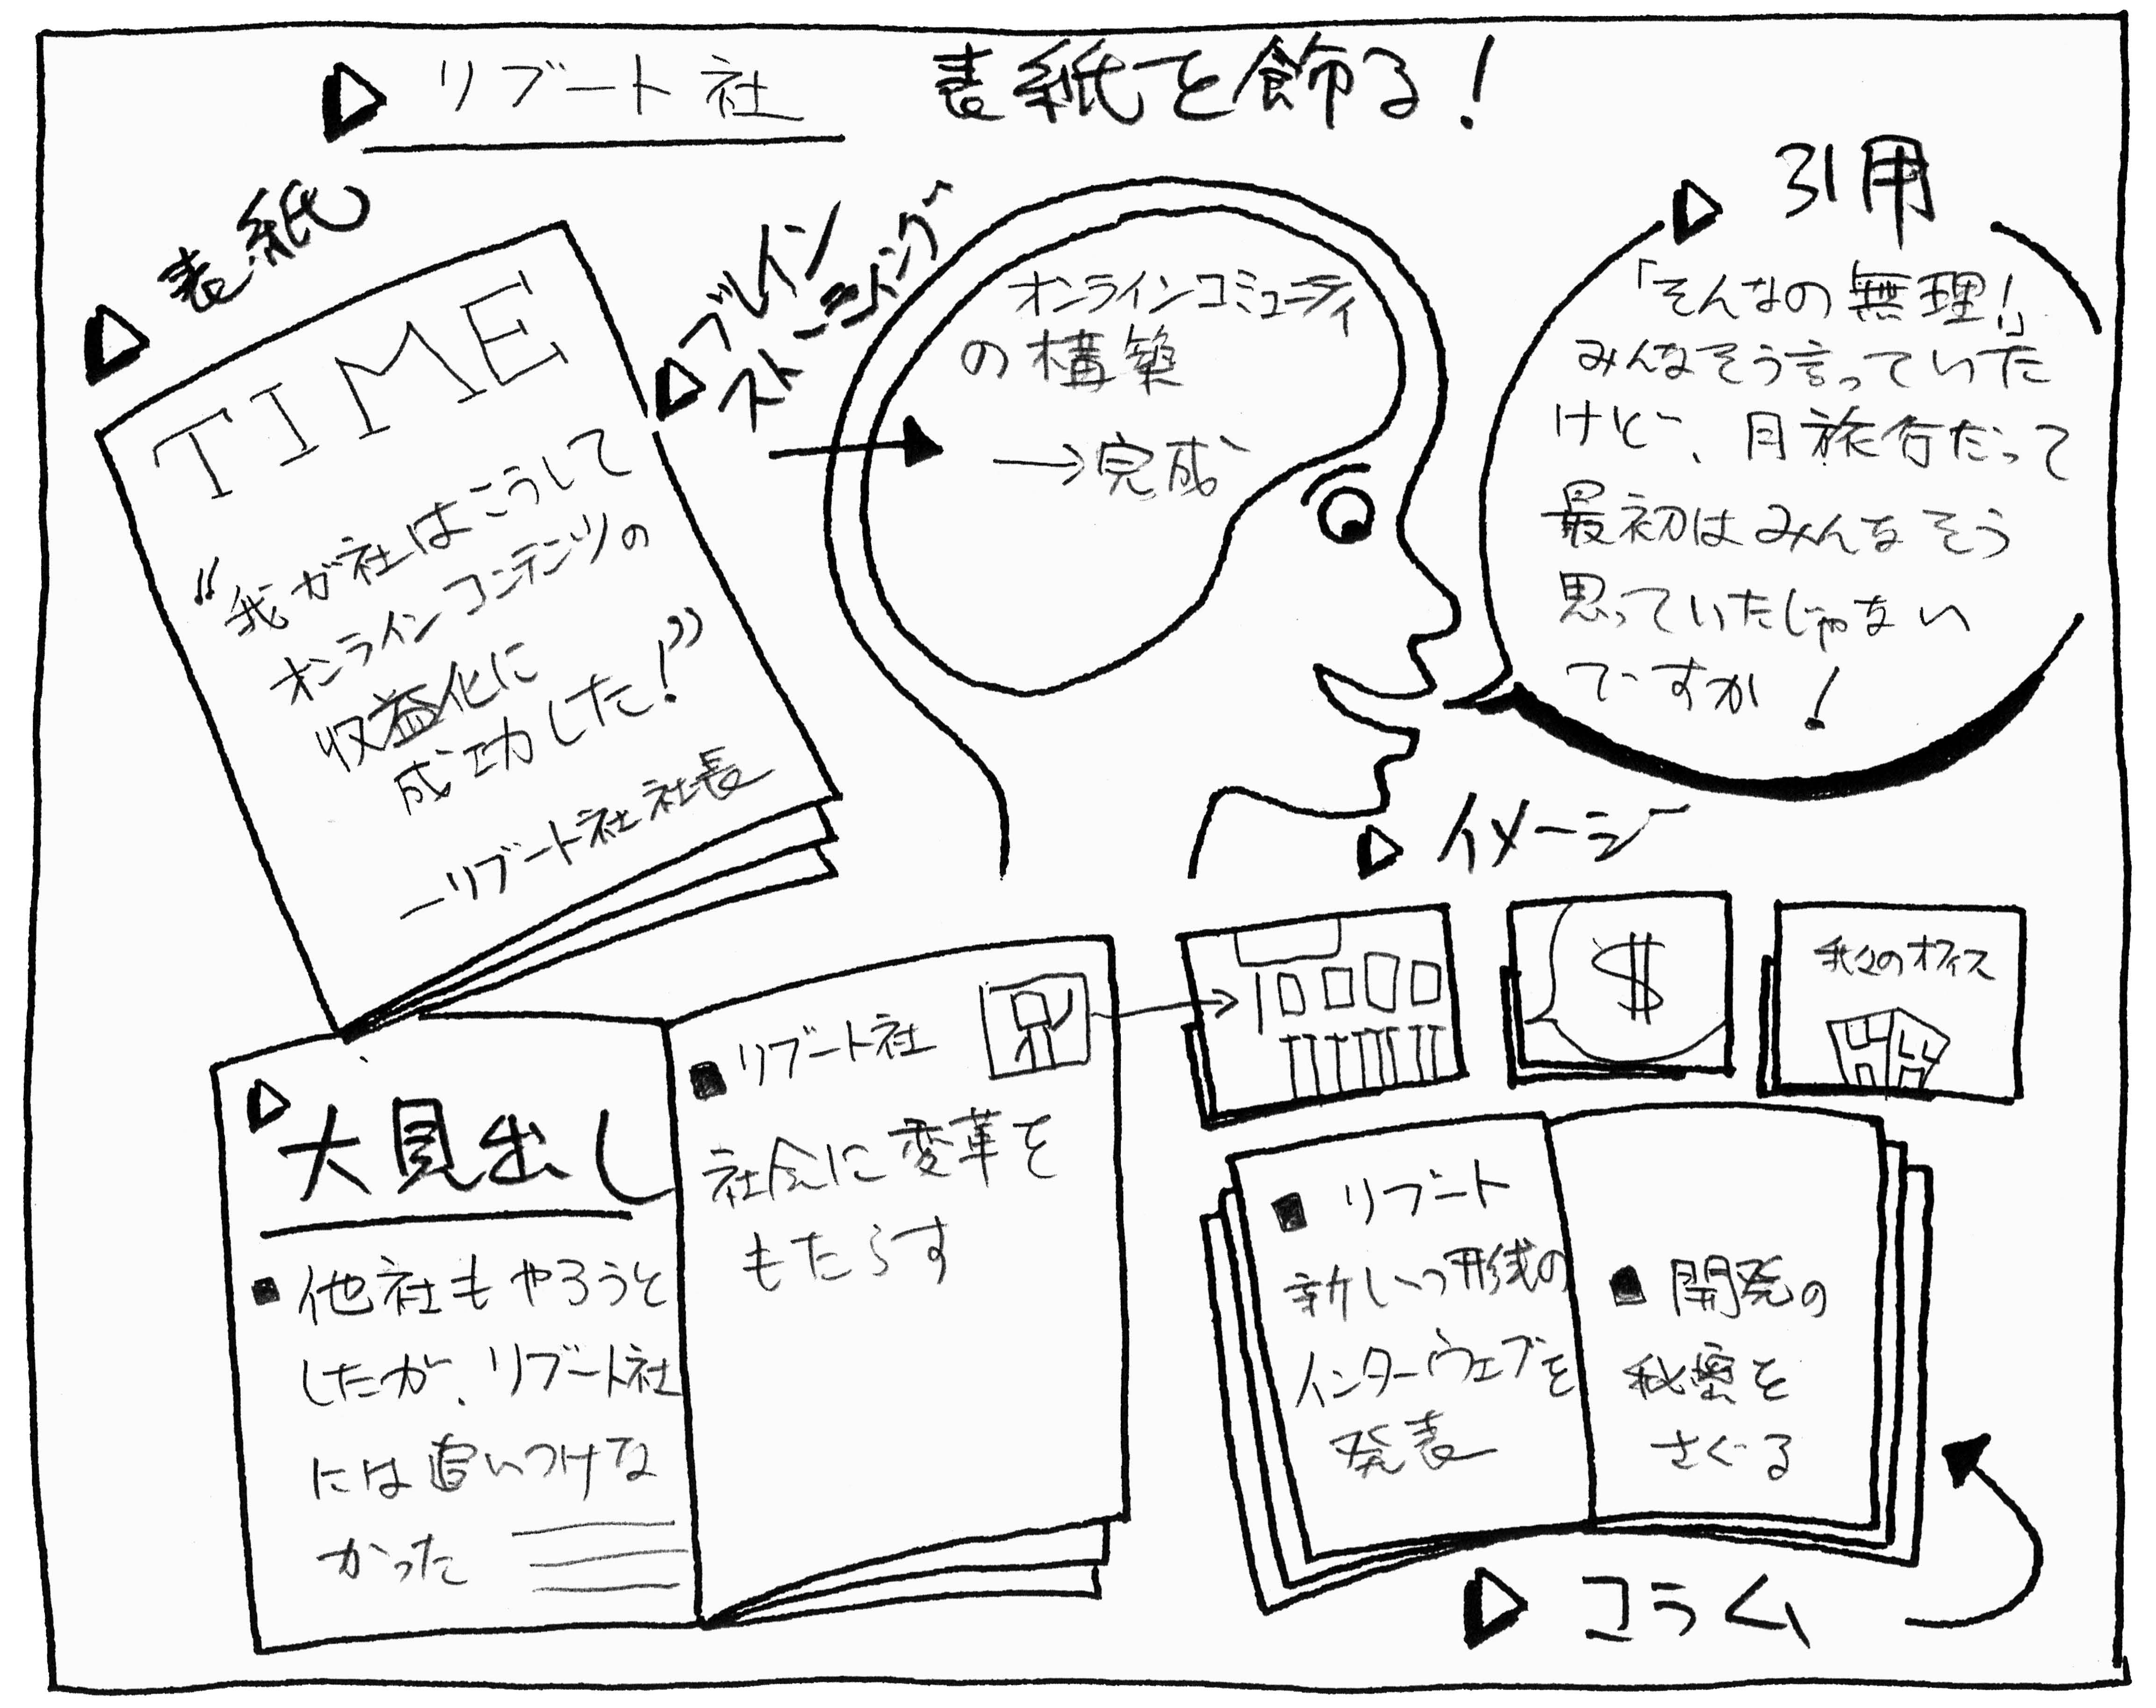 リブート社 表紙を飾る!
表紙
TIME
“我が社はこうして
オンラインコンテンツの
収益化に
成功した!”
—リブート社社長
ブレイン
ストーミング
オンラインコミュニティ
の構築
→完成
引用
「そんなの無理!」
みんなそう言っていた
けど、月旅行だって
最初はみんなそう
思っていたじゃない
ですか!
イメージ
$
我々のオフィス
大見出し
■他社もやろうと
したが、リブート社
には追いつけな
かった
■リブート社
社会に変革を
もたらす
■リブート
新しい形式の
インターウェブを
発表
■開発の
秘密を
さぐる
コラム